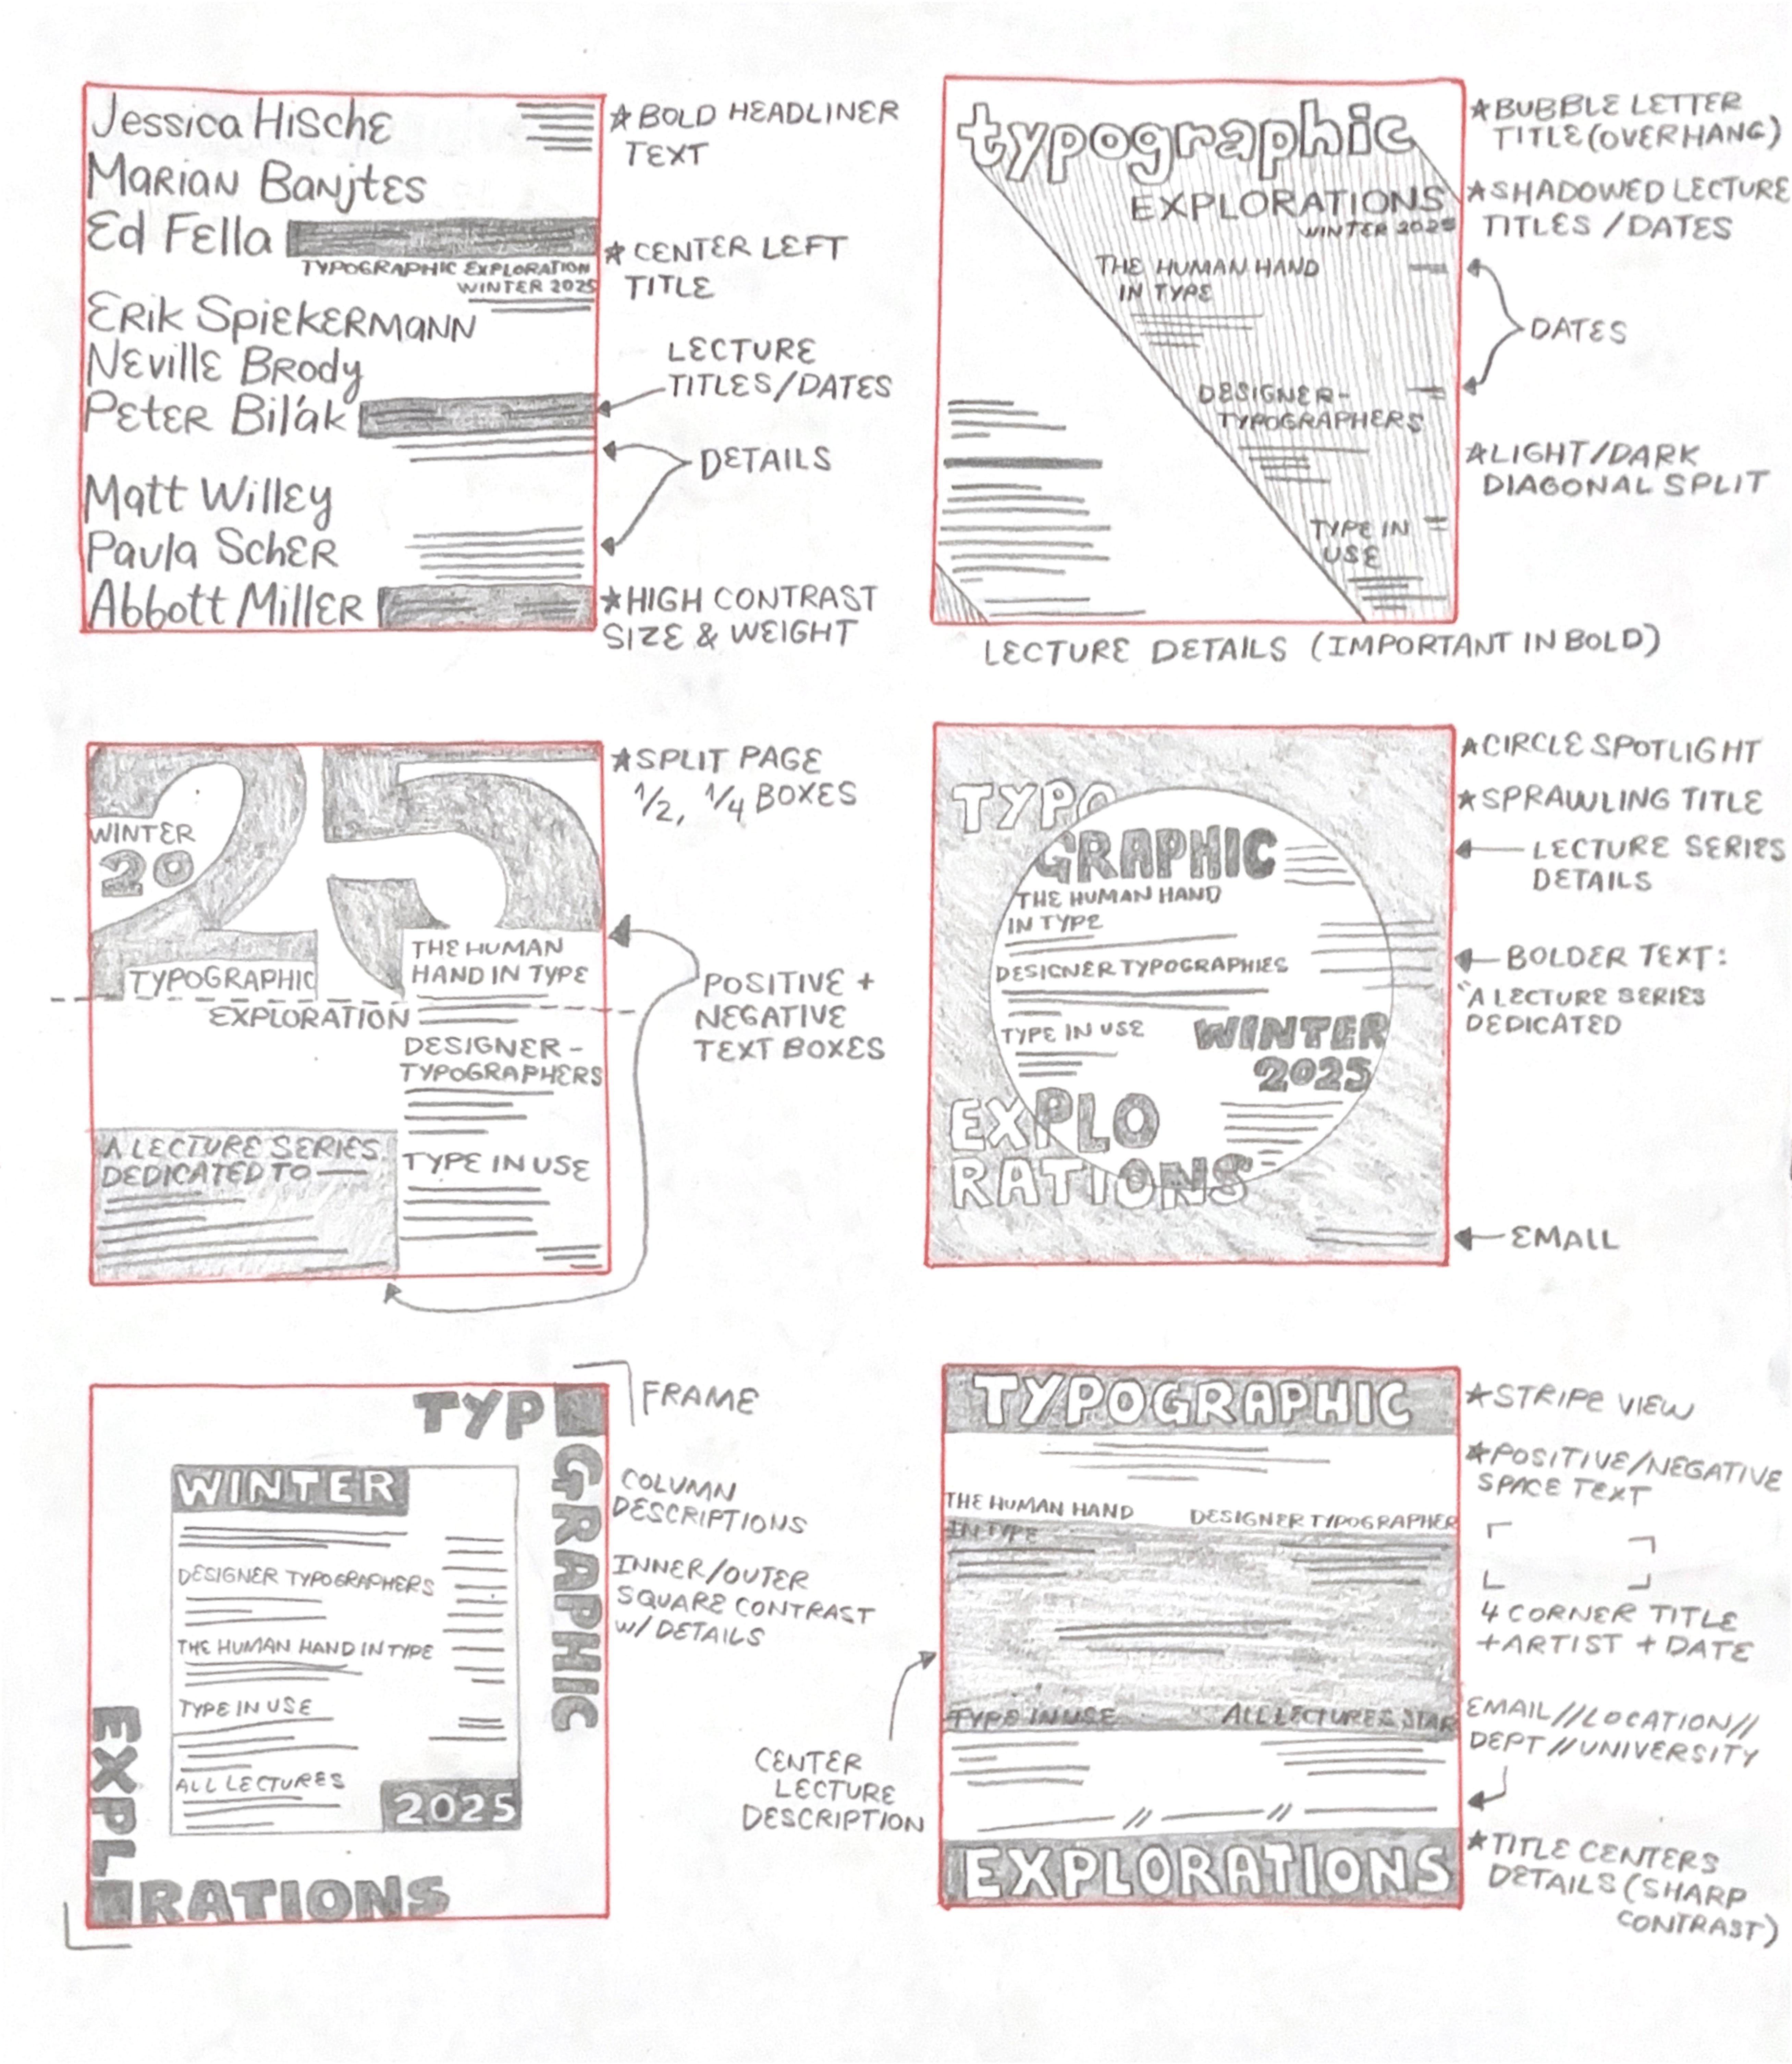 Jessica Hische
Marian Banjtes
Ed Fella
TYPOGRAPHIC EXPLORATION
WINTER 2025
Erik Spiekermann
Neville Brody
Peter Bil'ak
Matt Willey
Paula Scher
Abbott Miller
★ BOLD HEADLINER
TEXT
★ CENTER LEFT
TITLE
LECTURE
TITLES/DATES
DETAILS
★ HIGH CONTRAST
SIZE & WEIGHT
typographic
EXPLORATIONS
WINTER 2025
THE HUMAN HAND
IN TYPE
DESIGNER-
TYPOGRAPHERS
TYPE IN
USE
★ BUBBLE LETTER
TITLE (OVERHANG)
★ SHADOWED LECTURE
TITLES / DATES
DATES
★ LIGHT/DARK
DIAGONAL SPLIT
LECTURE DETAILS (IMPORTANT IN BOLD)
25
WINTER
20
TYPOGRAPHIC
EXPLORATION
THE HUMAN
HAND IN TYPE
DESIGNER-
TYPOGRAPHERS
TYPE IN USE
A LECTURE SERIES
DEDICATED TO
★ SPLIT PAGE
1/2, 1/4 BOXES
POSITIVE +
NEGATIVE
TEXT BOXES
TYPO
GRAPHIC
THE HUMAN HAND
IN TYPE
DESIGNER TYPOGRAPHIES
TYPE IN USE
WINTER
2025
EXPLO
RATIONS
★ CIRCLE SPOTLIGHT
★ SPRAWLING TITLE
LECTURE SERIES
DETAILS
BOLDER TEXT:
"A LECTURE SERIES
DEDICATED
EMAIL
TYP
GRAPHIC
WINTER
DESIGNER TYPOGRAPHERS
THE HUMAN HAND IN TYPE
TYPE IN USE
ALL LECTURES
2025
EXPL
RATIONS
FRAME
COLUMN
DESCRIPTIONS
INNER/OUTER
SQUARE CONTRAST
W/ DETAILS
TYPOGRAPHIC
THE HUMAN HAND
IN TYPE
DESIGNER TYPOGRAPHER
TYPE IN USE
ALL LECTURES STAR
//
//
EXPLORATIONS
CENTER
LECTURE
DESCRIPTION
★ STRIPE VIEW
★ POSITIVE/NEGATIVE
SPACE TEXT
4 CORNER TITLE
+ ARTIST + DATE
EMAIL//LOCATION//
DEPT//UNIVERSITY
★ TITLE CENTERS
DETAILS (SHARP
CONTRAST)